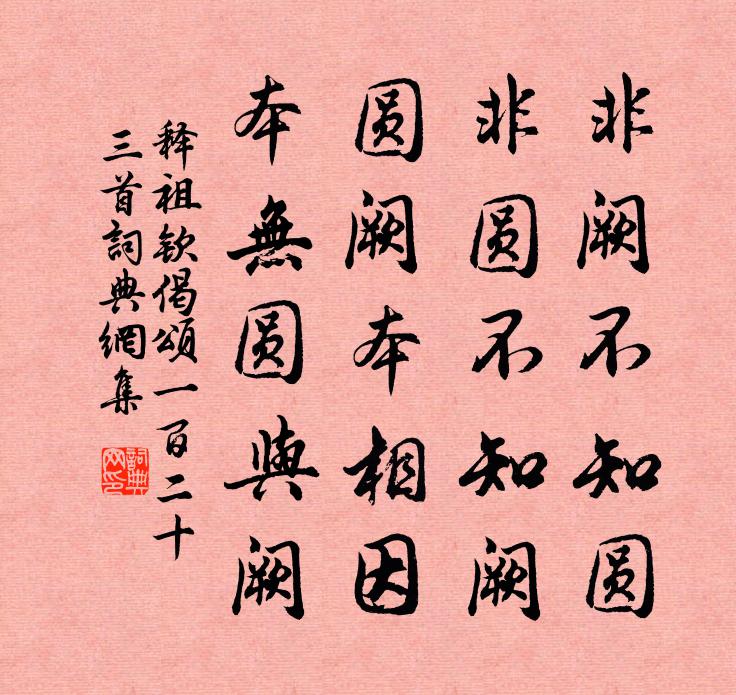 非阙不知圆
非圆不知阙
圆阙本相因
本無圆與阙
释祖钦偈頌一百二十
三首詞典網集
詞典
网印